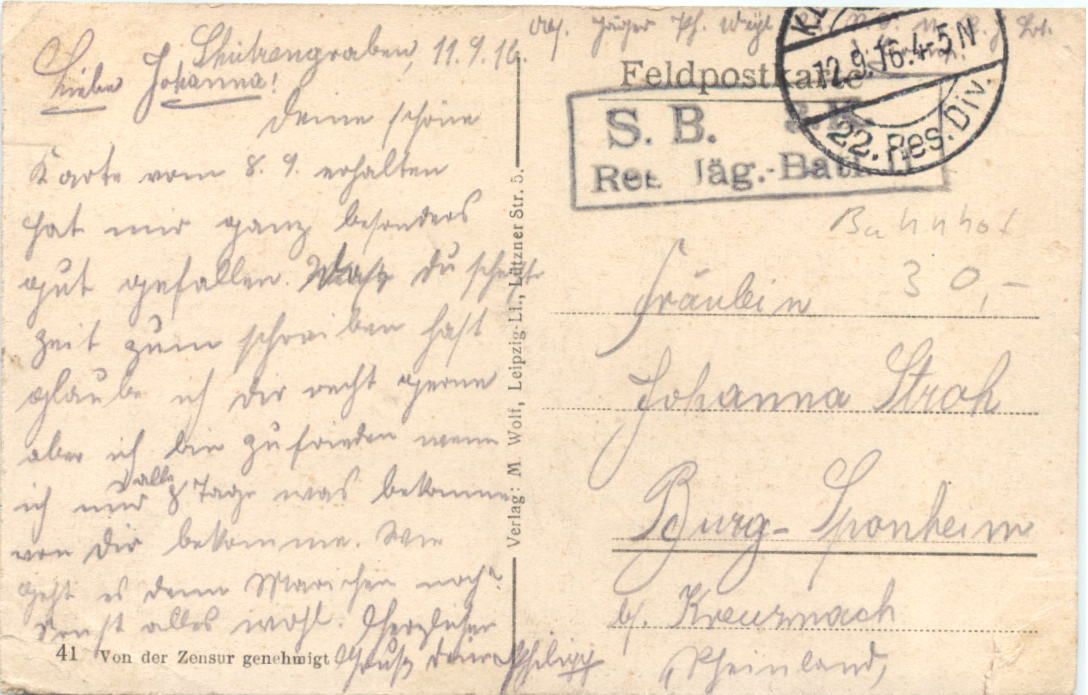 Abs. Jäger Ph.
Schützengraben, 11.9.16.
Liebe Johanna!
Deine schöne
Karte vom 8. 9. erhalten
hat mir ganz besonders
gut gefallen. Das Du
zeit zum schreiben hast
glaube ich Dir recht gerne
aber ich bin zufrieden wenn
ich nur alle 8 Tage was bekomme
von Dir bekomme. Wie
geht es denn Mariechen noch?
Sonst alles wohl. Herzlicher
Gruß Dein Philipp
41 Von der Zensur genehmigt
Verlag: M. Wolf, Leipzig-Li., Lützner Str. 5.
Feldpostkarte
12.9.16.4-5N
22. Res. Div.
S. B.
Res. Jäg.-Batl.
Bahnhof
30,-
Fräulein
Johanna Stroh
Burg-Sponheim
b/. Kreuznach
(Rheinland)